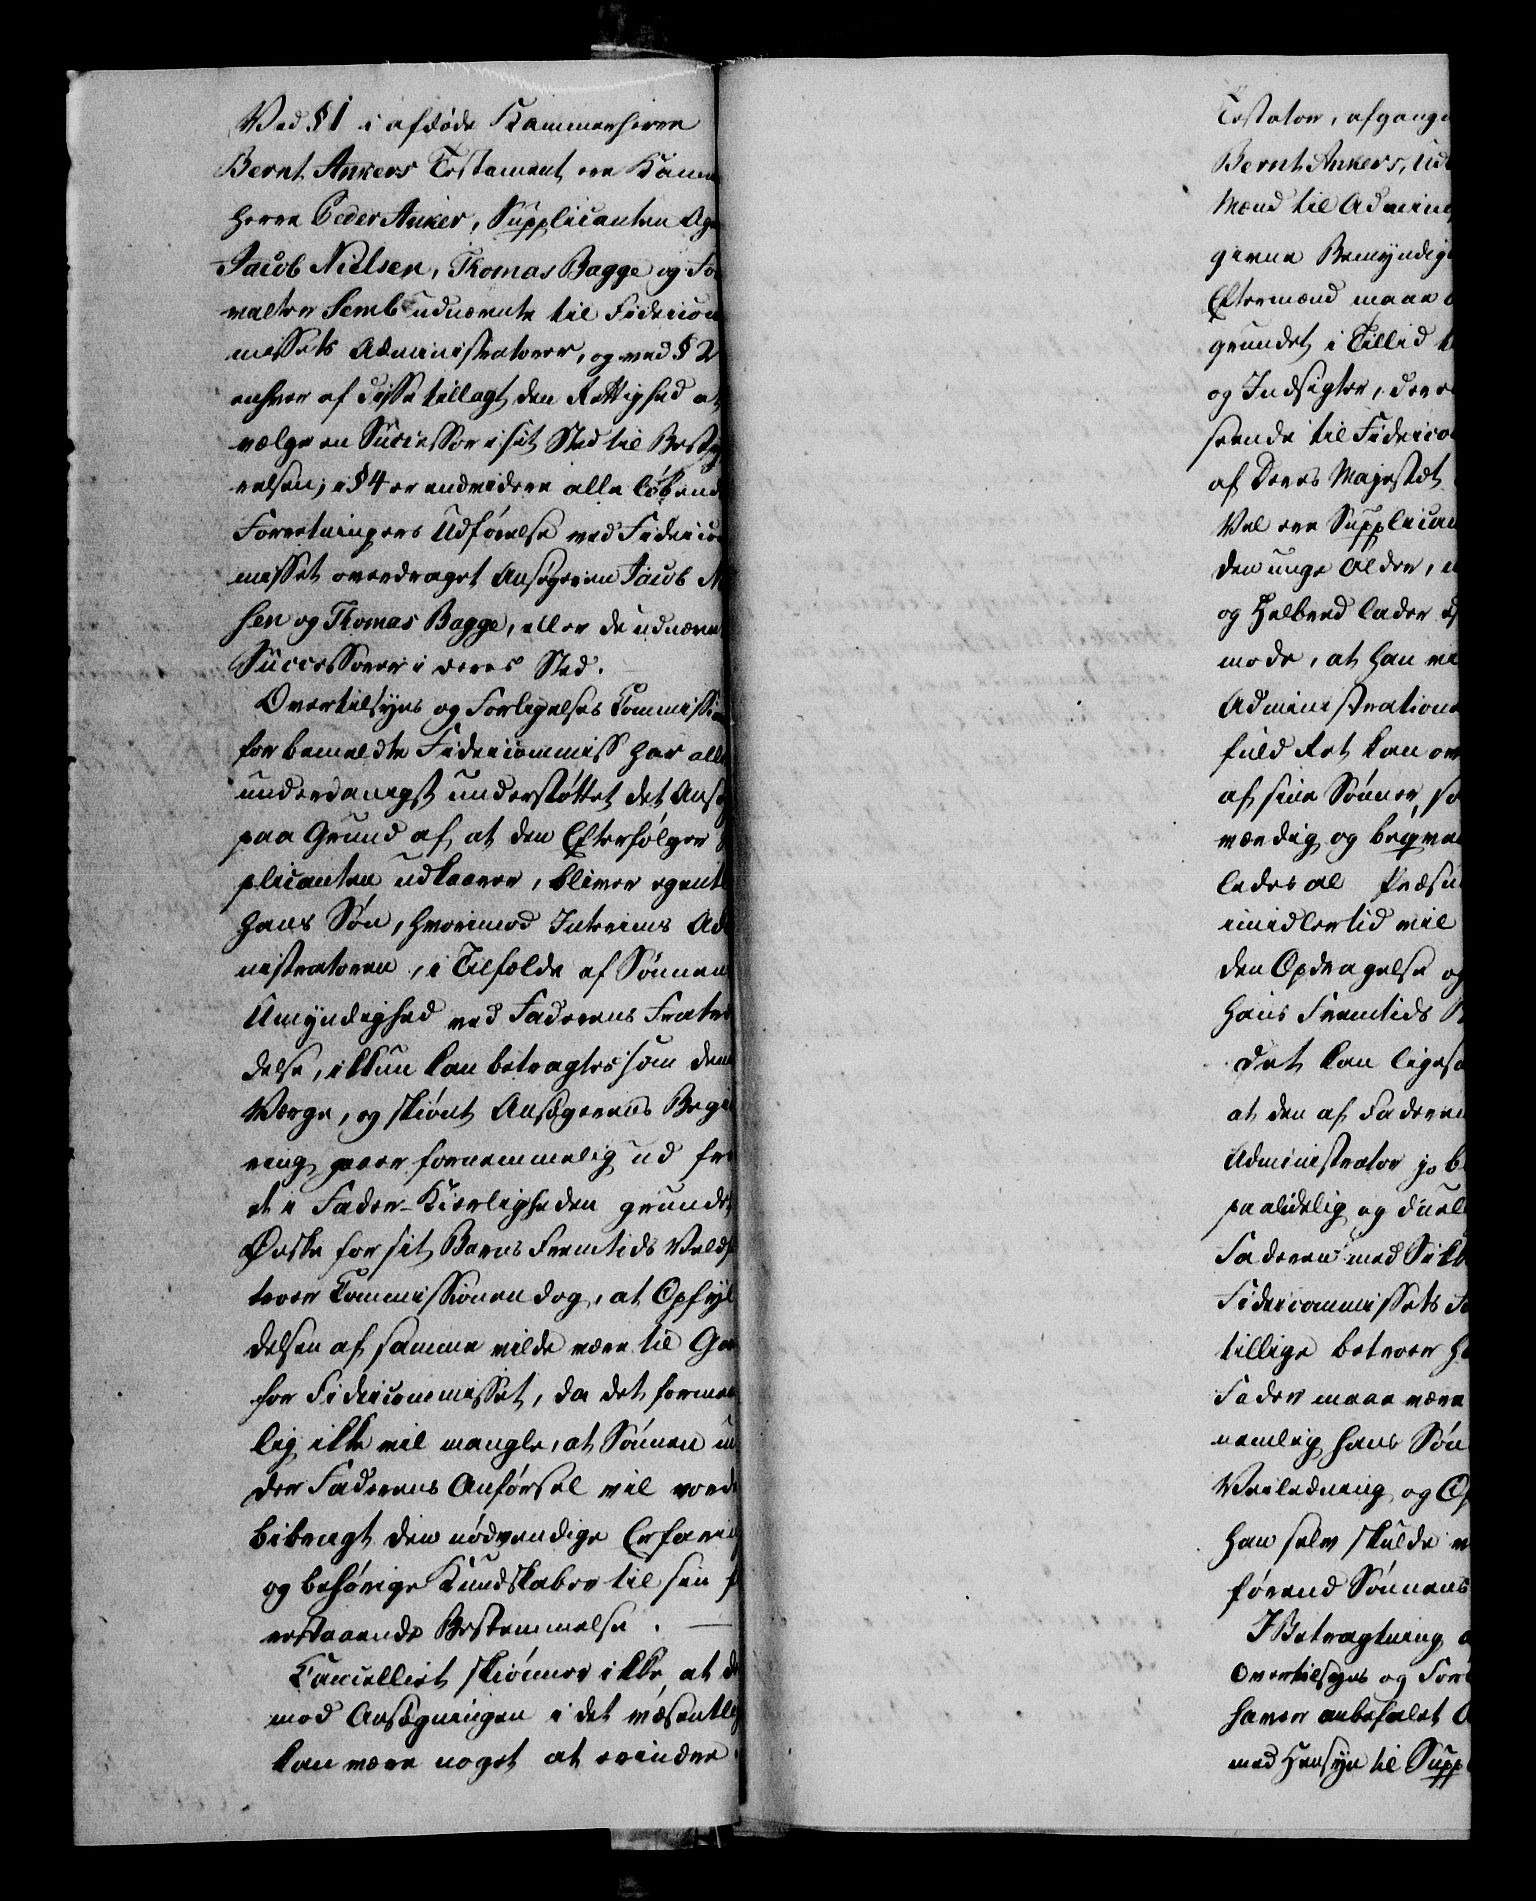 Ved § 1 i afdøde Kammerherre
Bernt Ankers Testament ere Kam
herre Peder Anker, Supplicanten Ag
Jacob Nielsen, Thomas Bagge og For
valter Semb udnævnte til Fideicom
missets Administratorer, og ved § 2
enhver af disse tillagt den Rettighed at
vælge en Successor i sit Sted til Besty
relsen; i § 4 er endvidere alle løbend
Forretningers Udførelse ved Fideicom
misset overdraget Ansøgeren Jacob Ni
sen og Thomas Bagge, eller de udnævn
Successorer i deres Sted.
Overtilsyns og Forligelses Commissio
for bemeldte Fideicommiss har aller
underdanigst understøttet det Ansø
paa Grund af, at den Efterfølger
plicanten udkaarer, bliver egentl
hans Søn, hvorimod Interims Ad
nistratoren, i Tilfælde af Sønnen
Umyndighed ved Faderens Fratræ
delse, ikkun kan betragtes som den
Værge, og skiønt Ansøgerens Begie
ring gaaer fornemmelig ud fra
et i Fader-Kierligheden grundet
Ønske for sit Barns Fremtids Velds
troer Commissionen dog, at Opfyl
delsen af samme vilde være til Ga
for Fideicommisset, da det formen
lig ikke vil mangle, at Sønnen un
der Faderens Anførsel vil vorde
bibragt den nødvendige Erfaring
og behørige Kundskaber til sin f
restaaende Bestemmelse. —
Cancelliet skiønner ikke, at de
mod Ansøgningen i det væsentlig
kan være noget at erindre.
Testator, afgangn
Bernt Ankers, ud
Mænd til Admin
givne Bemyndige
Eftermænd maae
grundet i Tillid t
og Indsigter, dere
seende til Fideico
af Deres Majestæt
Vel ere Supplican
den unge Alder,
og Helbred lader
mode, at han ve
Administratione
fuld Ret kan ov
af sine Sønner, so
værdig og beqve
ledes al Præsu
imidlertid vil
den Opdragelse og
hans Fremtids
Det kan ligesa
at den af Faderen
Administrator jo b
paalidelig og duel
Faderen med Sikk
Fideicommissets
tillige betroer h
Fader maae være
nemlig hans Søn
Veiledning og Op
han selv skulde
førend Sønnens
I Betragtning a
Overtilsyns og Forl
haver anbefalet
med Hensyn til Supp